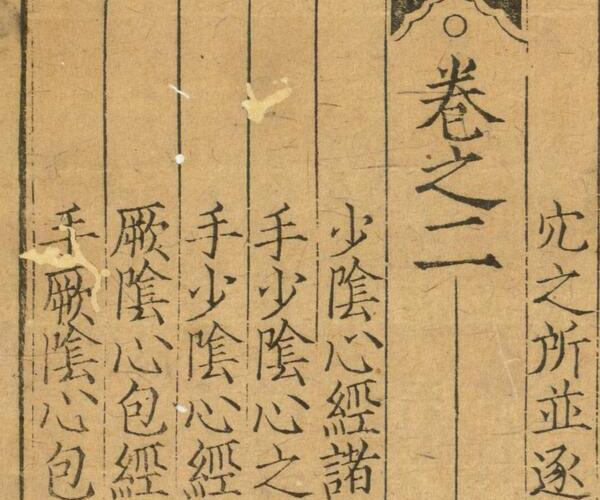 穴之所並逐
卷之二
少陰心經諸
手少陰心之
手少陰心經
厥陰心包經
手厥陰心包